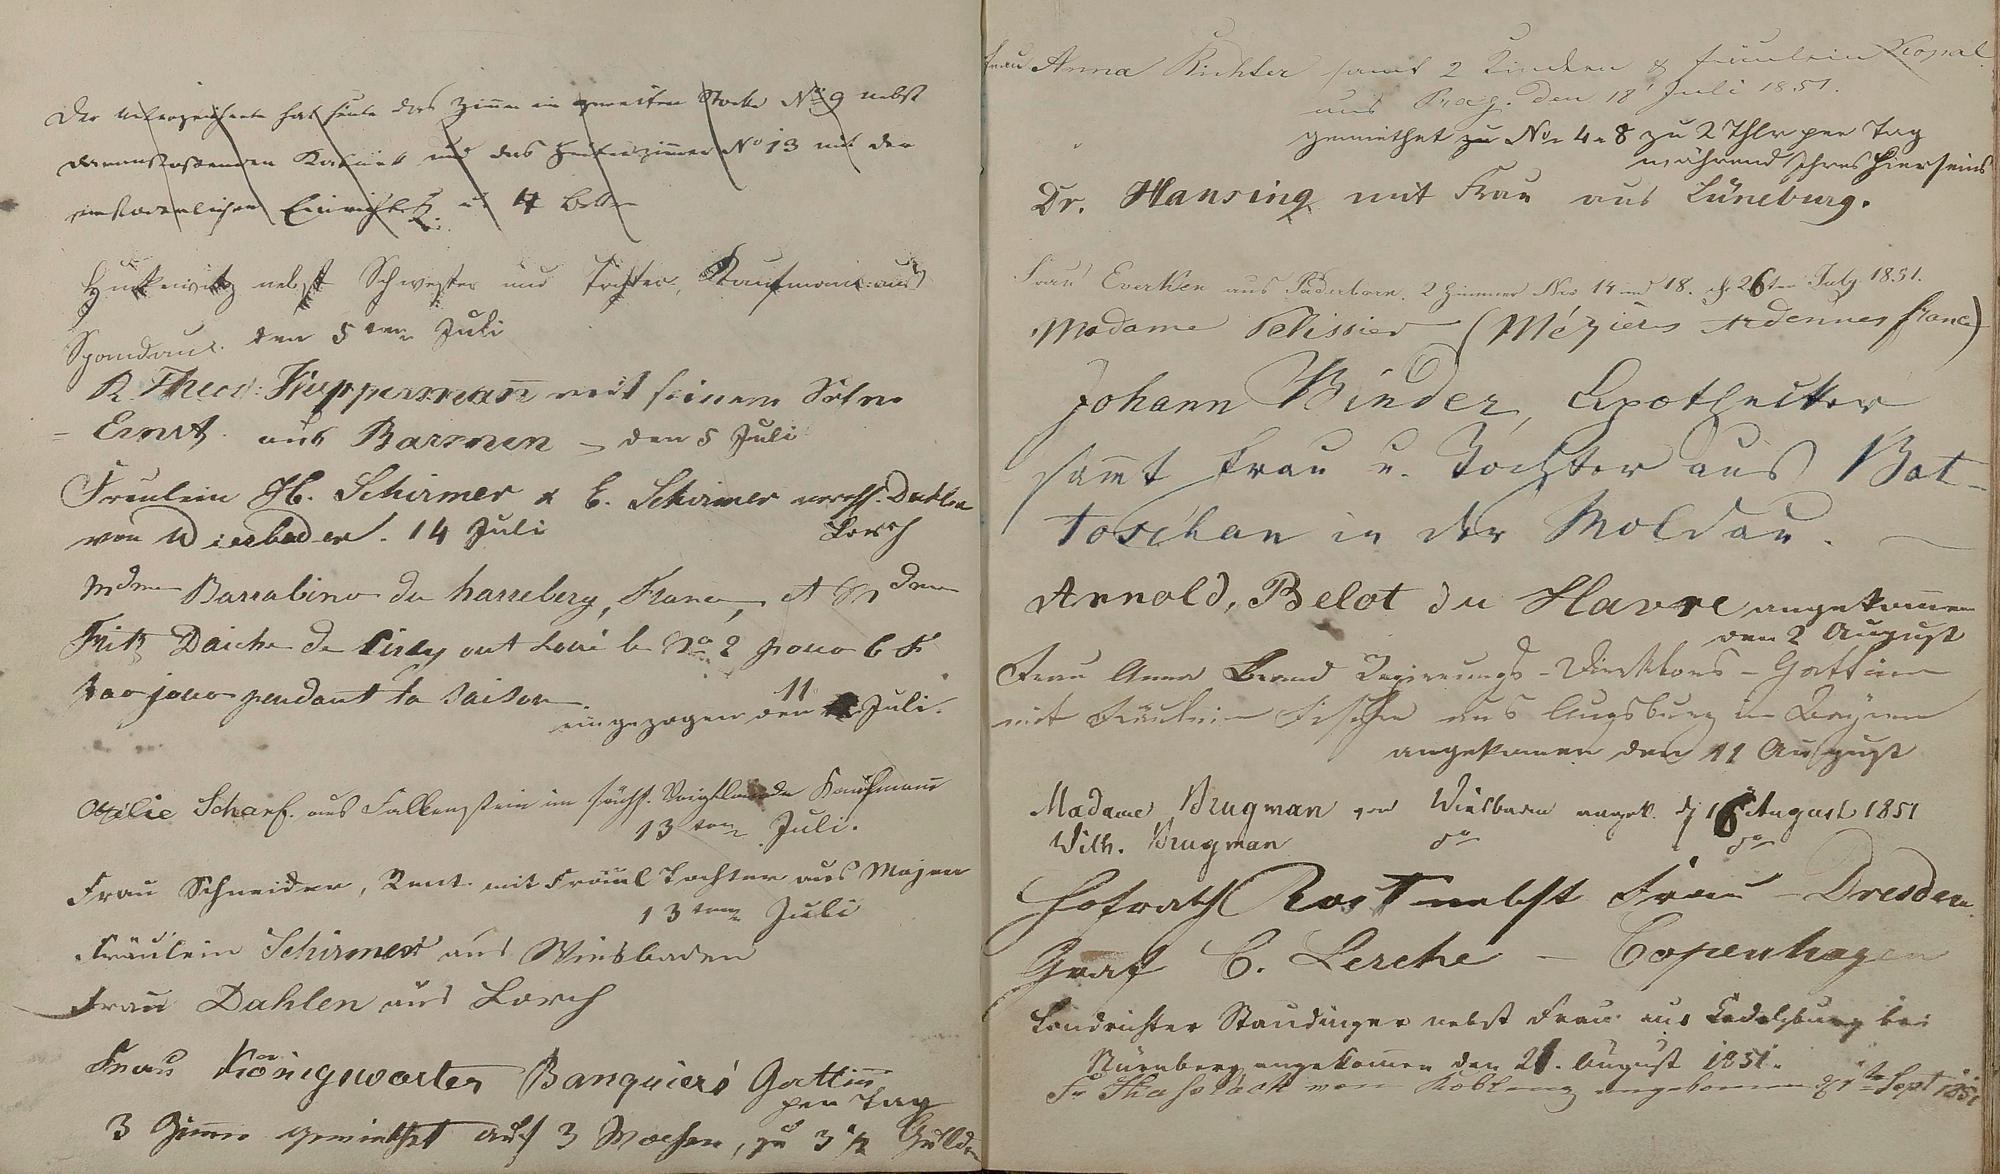 Der Unterzeichnete hat heute das Zimer im zweiten Stocke No 9 nebst
daranstossenden Kabinet und das Hinterzimmer No 13 mit der
erforderlichen Einricht. u. 4 Betten
nebst Schwester und Tochter, Kaufmann aus
Spandau. den 5ten Juli
R. Theod: Kuppersmann mit seinem Sohne
Ernst. aus Barmen – den 5 Juli
Fräulein H. Schirmer & E. Schirmer verehl. Dahlen
von Wiesbaden. 14 Juli Lorch
Mdme Barrabino de harreberg, France, et Mdme
Fritz Daiche de Cirey ont loué le No 2 pour 6 F
par jour pendant la saison.
eingezogen den 11 Juli.
Ottilie Scharf. aus Falkenstein im sächs. Voigtlande Kaufmann
13ten Juli.
Frau Schneider, Rent. mit Fräul Tochter aus Mayen
13ten Juli
Fräulein Schirmer aus Wiesbaden
Frau Dahlen aus Lorch
Frau Königswarter Banquiers Gattin
per Tag
3 Zimer gemiethet auf 3 Wochen, zu 3 1/2 Gulden
Frau Anna Richter samt 2 Kindern & Fräulein Kopal
aus Prag. den 18' Juli 1851.
gemiethet zu No. 4 & 8 zu 2 Thlr per Tag
während ihres Hierseins
Dr. Hansing mit Frau aus Lüneburg.
Frau Everken aus Paderborn. 2 Zimmer Nro 14 und 18. d. 26ten July 1851.
Madame Pelissier (Mézières Ardennes france)
Johann Binder, Apotheker
samt Frau u. Tochter aus Bot-
toschan in der Moldau. –
Arnold, Belot du Havre angekomen
den 2 August
Frau Anna Brand Regierungs-Direktors-Gattin
mit Fräulein Fischer aus Augsburg in Bayern
angekomen den 11 August
Madame Brugman von Wiesbaden angek. d 16 August 1851
Wilh. Brugman do do
Hofrath Rost nebst Frau – Dresden.
Graf C. Lerche – Copenhagen
Landrichter Staudinger nebst Frau aus Cadolzburg bei
Nürnberg angekomen den 21. August 1851.
von Koblenz angekomen d 1ten Sept 1851